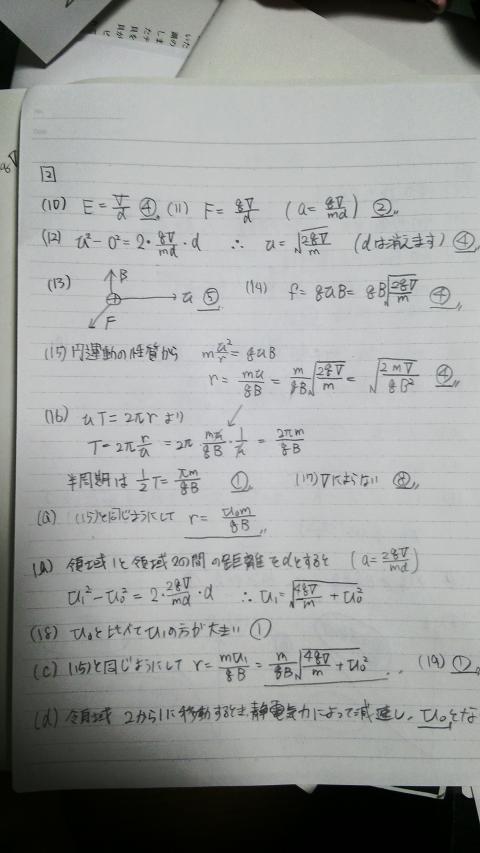 2
(10) E = V/d ④ (11) F = qV/d (a = qV/md) ②
(12) u² - 0² = 2・qV/md・d ∴ u = √(2qV/m) (dは消えます) ④
(13) B u F ⑤ (14) f = quB = qB√(2qV/m) ④
(15) 円運動の性質から m u²/r = quB
r = mu/qB = m/qB √(2qV/m) = √(2mV/qB²) ④
(16) uT = 2πr より
T = 2π r/u = 2π・mu/qB・1/u = 2πm/qB
半周期は 1/2 T = πm/qB ① (17) Vによらない ⑧
(a) (15)と同じようにして r = u₀m/qB
(b) 領域1と領域2の間の距離をdとすると (a = 2qV/md)
u₁² - u₀² = 2・2qV/md・d ∴ u₁ = √(4qV/m + u₀²)
(18) u₀と比べてu₁の方が大きい ①
(c) (15)と同じようにして r = mu₁/qB = m/qB √(4qV/m + u₀²) (19) ①
(d) 領域2から1に移動するとき、静電気力によって減速し、u₀とな